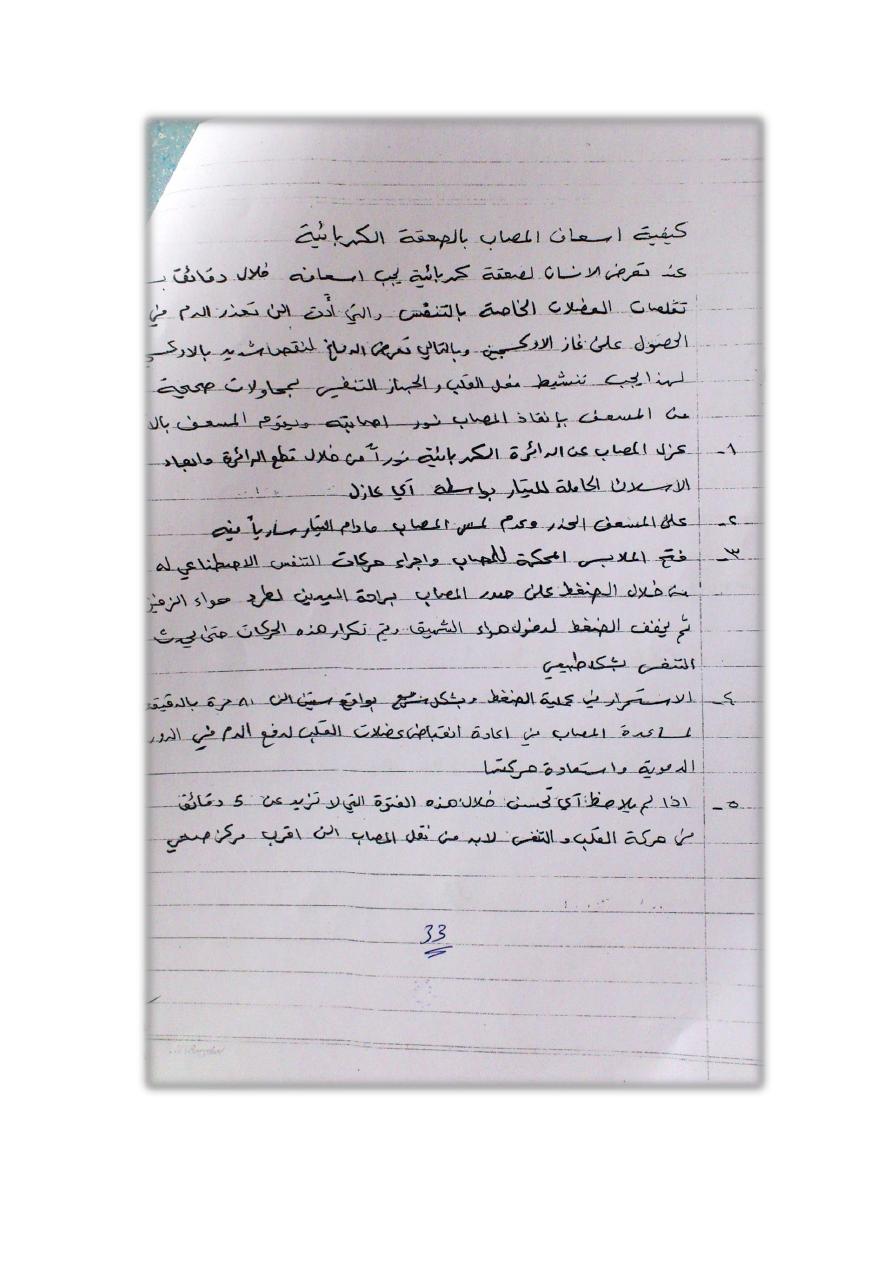 كيفية اسعاف المصاب بالصعقة الكهربائية
عند تعرض الانسان لصعقة كهربائية يجب اسعافه خلال دقائق بـ
تقلصات العضلات الخاصة بالتنفس والتي أدت الى تعذر الدم في
الحصول على غاز الاوكسجين وبالتالي تعرض الدماغ لنقص شديد بالاوكسـ
لهذا يجب تنشيط عمل القلب والجهاز التنفسي بمحاولات صحيحة
من المسعف بإنقاذ المصاب فور اصابته ويقوم المسعف بالا
١- عزل المصاب عن الدائرة الكهربائية فوراً من خلال قطع الدائرة وابعاد
الاسلاك الحاملة للتيار بواسطة أي عازل
٢- على المسعف الحذر وعدم لمس المصاب مادام التيار سارياً فيه
٣- فتح الملابس المحكمة للمصاب واجراء حركات التنفس الاصطناعي له
من خلال الضغط على صدر المصاب براحة اليدين لطرد هواء الزفير
ثم يخفف الضغط لدخول هواء الشهيق ويتم تكرار هذه الحركات حتى يحدث
التنفس بشكل طبيعي
٤- الاستمرار في عملية الضغط وبشكل سريع بواقع ستين الى ٨٠ مرة بالدقيقة
لمساعدة المصاب في اعادة انقباض عضلات القلب لدفع الدم في الدور
الدموية واستعادة حركتها
٥- اذا لم يلاحظ أي تحسن خلال هذه الفترة التي لا تزيد عن 5 دقائق
في حركة القلب والتنفس لابد من نقل المصاب الى اقرب مركز صحي
33